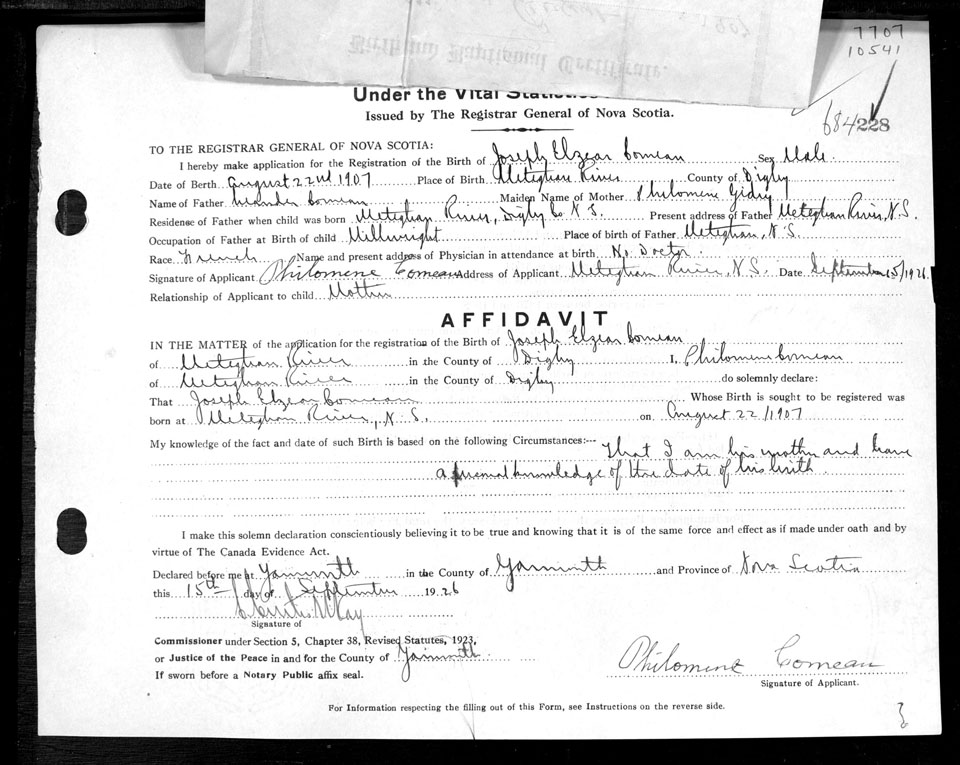 7707
10541
Under the Vital Statistics
Issued by The Registrar General of Nova Scotia.
684 228
TO THE REGISTRAR GENERAL OF NOVA SCOTIA:
I hereby make application for the Registration of the Birth of Joseph Elzear Comeau Sex Male.
Date of Birth August 22nd 1907 Place of Birth Meteghan River County of Digby
Name of Father Leander Comeau Maiden Name of Mother Philomene Gidry
Residense of Father when child was born Meteghan River, Digby Co N.S. Present address of Father Meteghan River, N.S.
Occupation of Father at Birth of child Millwright Place of birth of Father Meteghan, N.S.
Race French Name and present address of Physician in attendance at birth No Doctor.
Signature of Applicant Philomene Comeau Address of Applicant Meteghan River, N.S. Date September 15/1926.
Relationship of Applicant to child Mother
AFFIDAVIT
IN THE MATTER of the application for the registration of the Birth of Joseph Elzear Comeau
of Meteghan River in the County of Digby I, Philomene Comeau
of Meteghan River in the County of Digby do solemnly declare:
That Joseph Elzear Comeau Whose Birth is sought to be registered was
born at Meteghan River, N.S. on August 22/1907
My knowledge of the fact and date of such Birth is based on the following Circumstances:--- That I am his mother and have
a personal knowledge of the date of his birth.
I make this solemn declaration conscientiously believing it to be true and knowing that it is of the same force and effect as if made under oath and by
virtue of The Canada Evidence Act.
Declared before me at Yarmouth in the County of Yarmouth and Province of Nova Scotia
this 15th day of September 1926
Signature of
Commissioner under Section 5, Chapter 38, Revised Statutes, 1923,
or Justice of the Peace in and for the County of Yarmouth
If sworn before a Notary Public affix seal.
Philomene Comeau
Signature of Applicant.
For Information respecting the filling out of this Form, see Instructions on the reverse side.